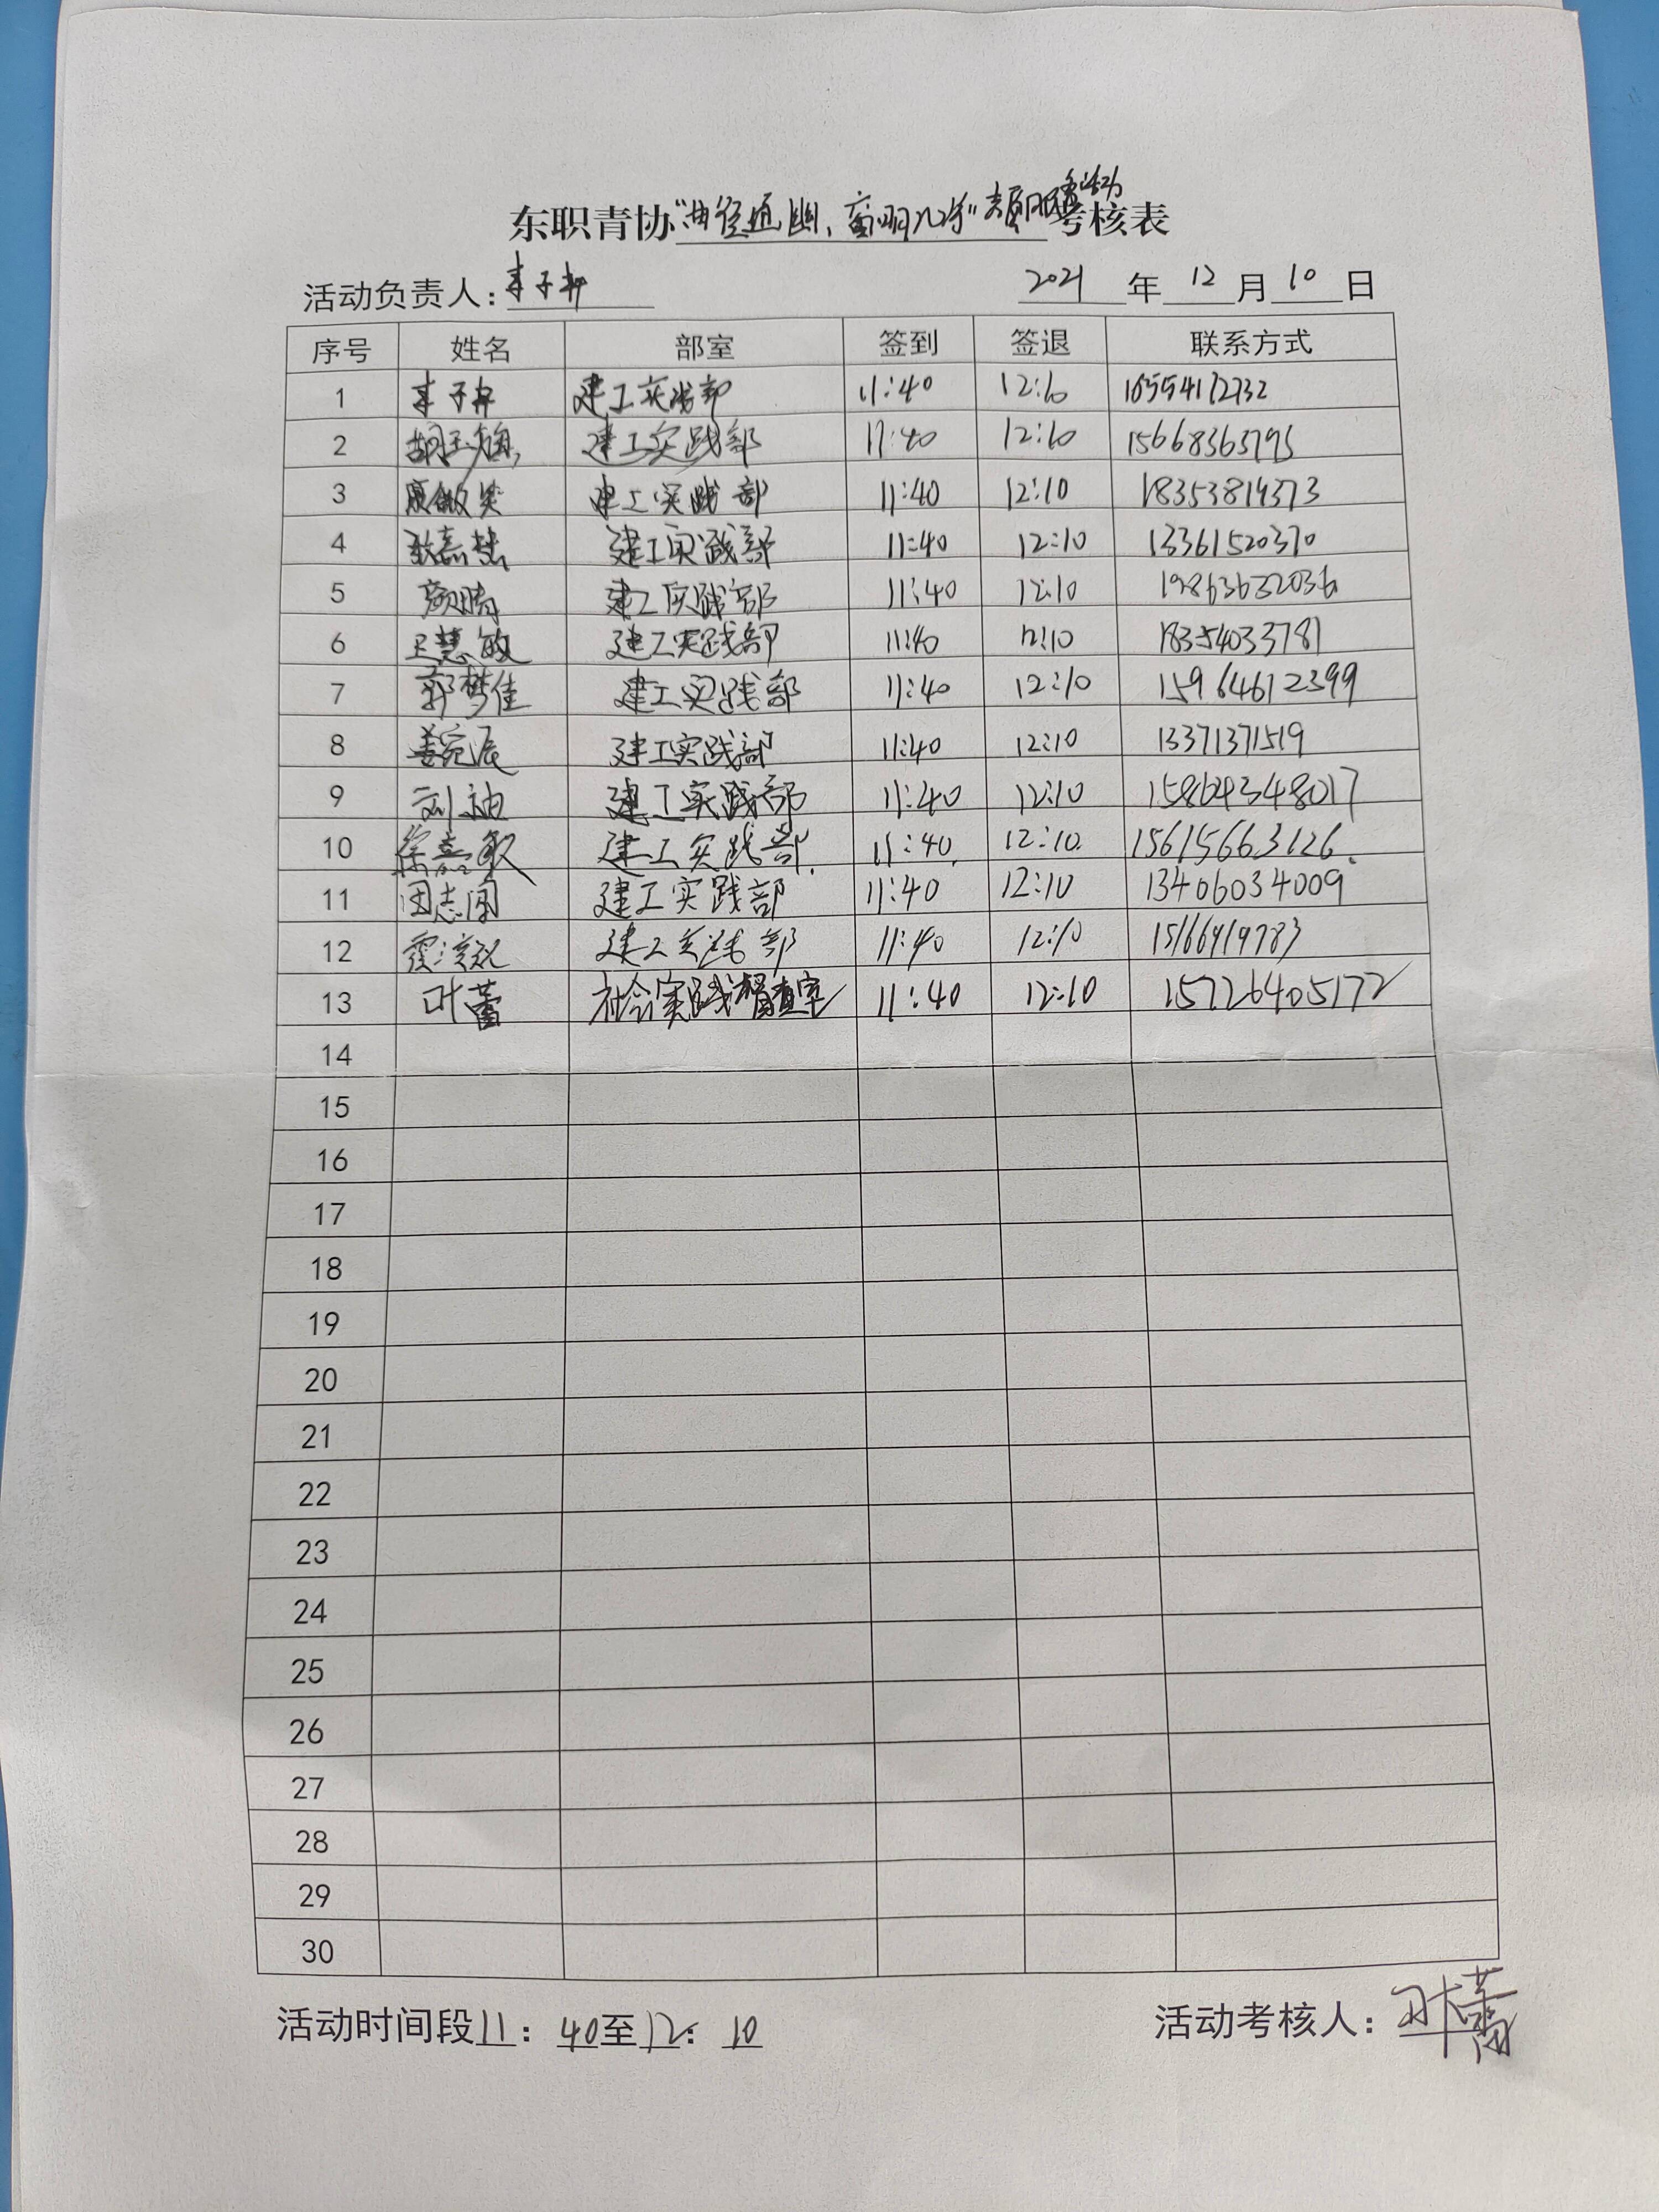 东职青协"曲径通幽、窗明几净"志愿服务活动考核表
活动负责人: 2021 年 12 月 10 日
序号 姓名 部室 签到 签退 联系方式
1 建工实践部 11:40 12:10 18554172732
2 建工实践部 11:40 12:10 15668363795
3 建工实践部 11:40 12:10 18353819373
4 建工实践部 11:40 12:10 13361520370
5 颜晴 建工实践部 11:40 12:10 19863632036
6 王慧敏 建工实践部 11:40 12:10 18354033781
7 郭梦佳 建工实践部 11:40 12:10 15964612399
8 姜宛辰 建工实践部 11:40 12:10 13371371519
9 刘迪 建工实践部 11:40 12:10 15864348017
10 徐嘉敏 建工实践部. 11:40. 12:10. 15615663126.
11 田志国 建工实践部 11:40 12:10 13406034009
12 建工实践部 11:40 12:10 15166919783
13 叶蕾 社会实践督查室 11:40 12:10 15726405172
14
15
16
17
18
19
20
21
22
23
24
25
26
27
28
29
30
活动时间段11:40至12:10 活动考核人:叶蕾